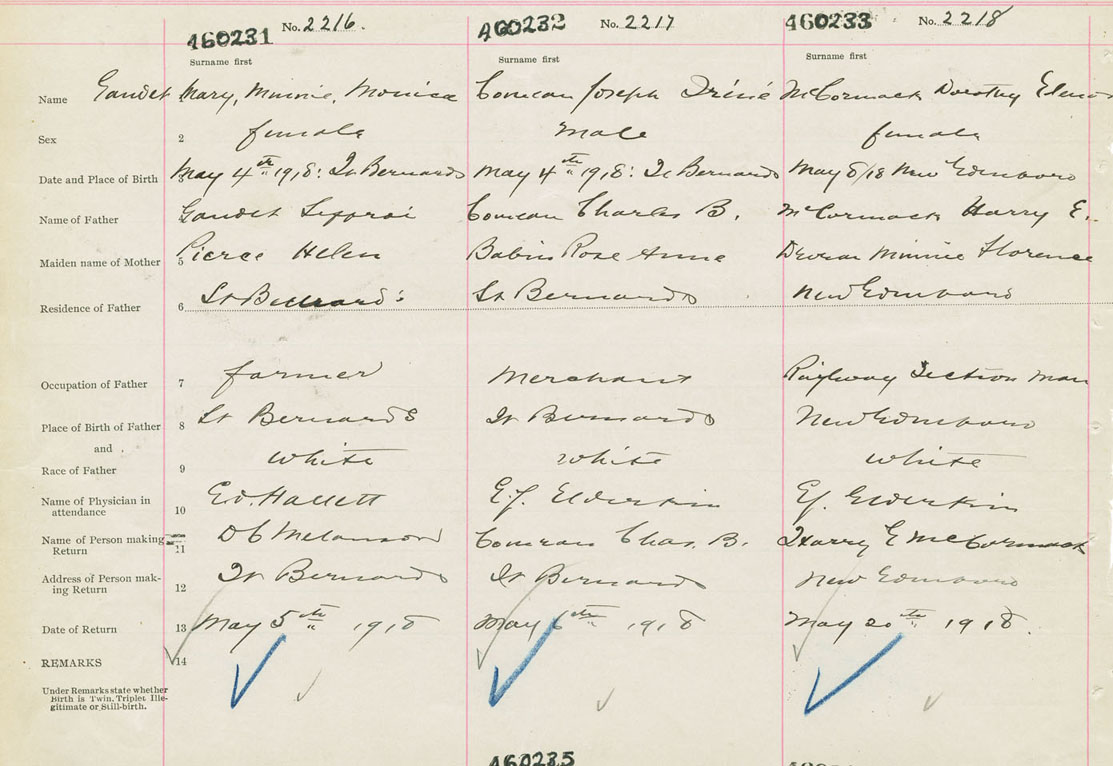 460231 No. 2216. 460232 No. 2217 460233 No. 2218
Surname first Surname first Surname first
Name Gaudet Mary, Minnie, Monica Comeau Joseph Irénée McCormack Dorothy
Sex 2 female male female
Date and Place of Birth 3 May 4th 1918: St Bernards May 4th 1918: St Bernards May 8/18 New Edinboro
Name of Father Gaudet Comeau Charles B. McCormack Harry E.
Maiden name of Mother 5 Pierce Helen Babin Rose Anne Minnie Florence
Residence of Father 6 St Bernard's St Bernards New Edinboro
Occupation of Father 7 farmer Merchant Railway Section man
Place of Birth of Father 8 St Bernards St Bernards New Edinboro
and
Race of Father 9 white white white
Name of Physician in
attendance 10 Ed. Hallett E.J. Elderkin EJ. Elderkin
Name of Person making
Return 11 D C Melanson Comeau Chas. B. Harry E McCormack
Address of Person mak-
ing Return 12 St Bernards St Bernards New Edinboro
Date of Return 13 May 5th 1918 May 6th 1918 May 20th 1918.
REMARKS 14
Under Remarks state whether
Birth is Twin, Triplet, Ille-
gitimate or Still-birth.
460235